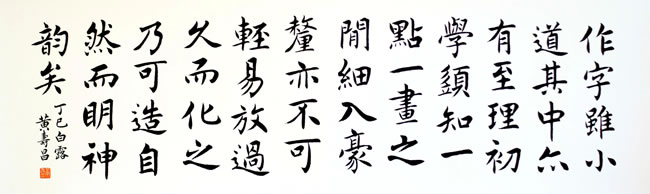 作字雖小
道其中亦
有至理初
學須知一
點一畫之
閒細入豪
釐亦不可
輕易放過
久而化之
乃可造自
然而明神
韵矣
丁巳白露
黄壽昌